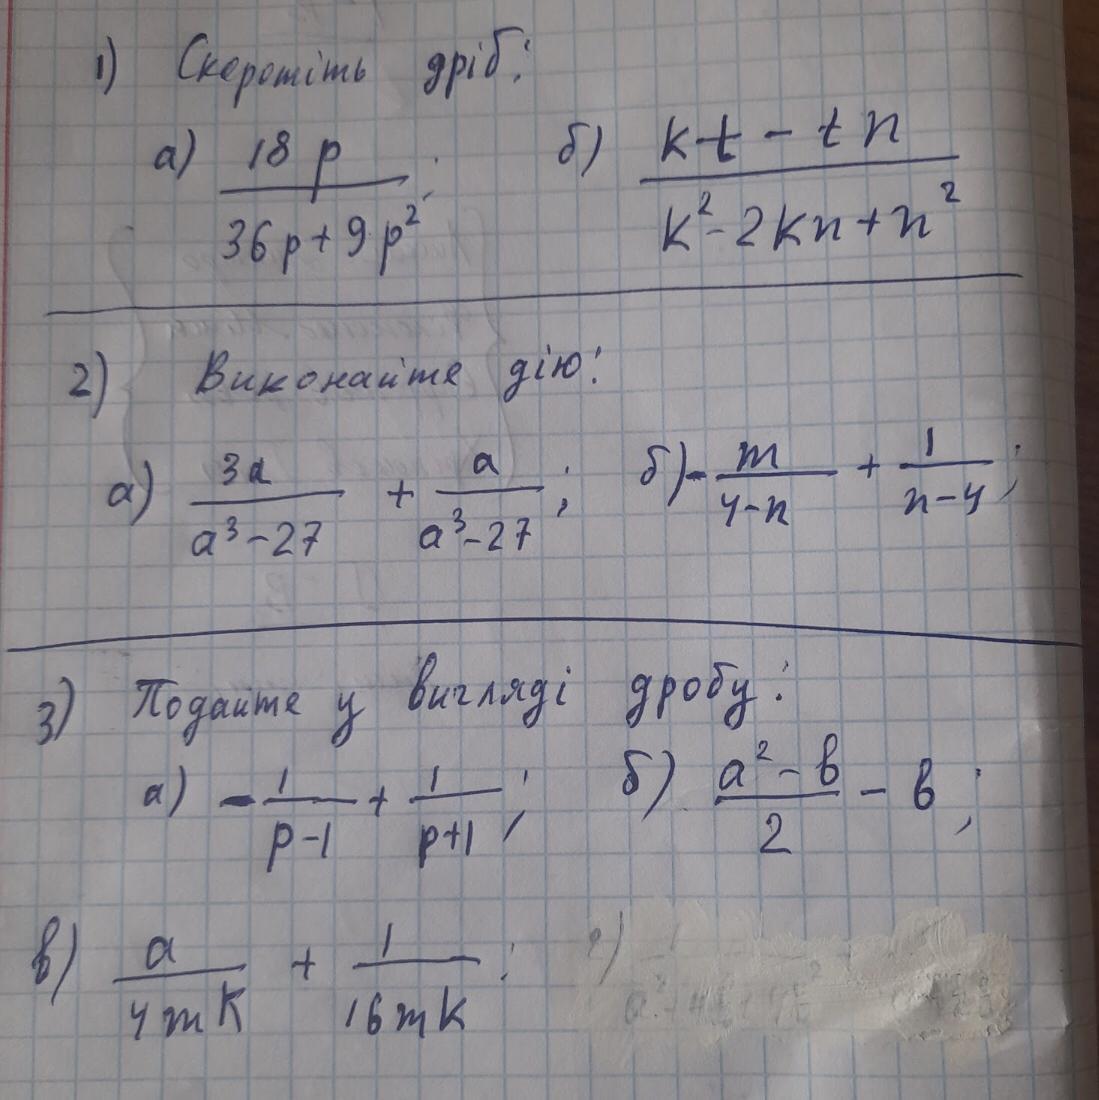 1) Скоротіть дріб:
а) 18p / 36p + 9p²; б) kt - tn / k² - 2kn + n²
2) Виконайте дію:
а) 3a / a³ - 27 + a / a³ - 27; б) - m / 4 - n + 1 / n - 4;
3) Подайте у вигляді дробу:
а) - 1 / p - 1 + 1 / p + 1; б) a² - b / 2 - b;
в) a / 4mk + 1 / 16mk;